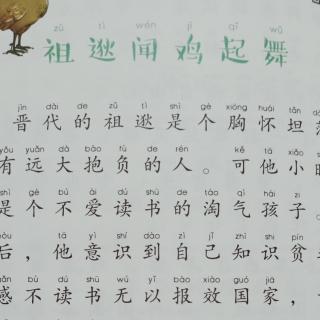 zǔ tì wén jī qǐ wǔ
祖逖闻鸡起舞
jìn dài de zǔ tì shì gè xióng huái tǎn
晋代的祖逖是个胸怀坦荡
yǒu yuǎn dà bào fù de rén kě tā xiǎo
有远大抱负的人。可他小时
shì gè bú ài dú shū de táo qì hái zi
是个不爱读书的淘气孩子。
hòu tā yì shí dào zì jǐ zhī shi pín
后，他意识到自己知识贫
gǎn bù dú shū wú yǐ bào xiào guó jiā
感不读书无以报效国家，